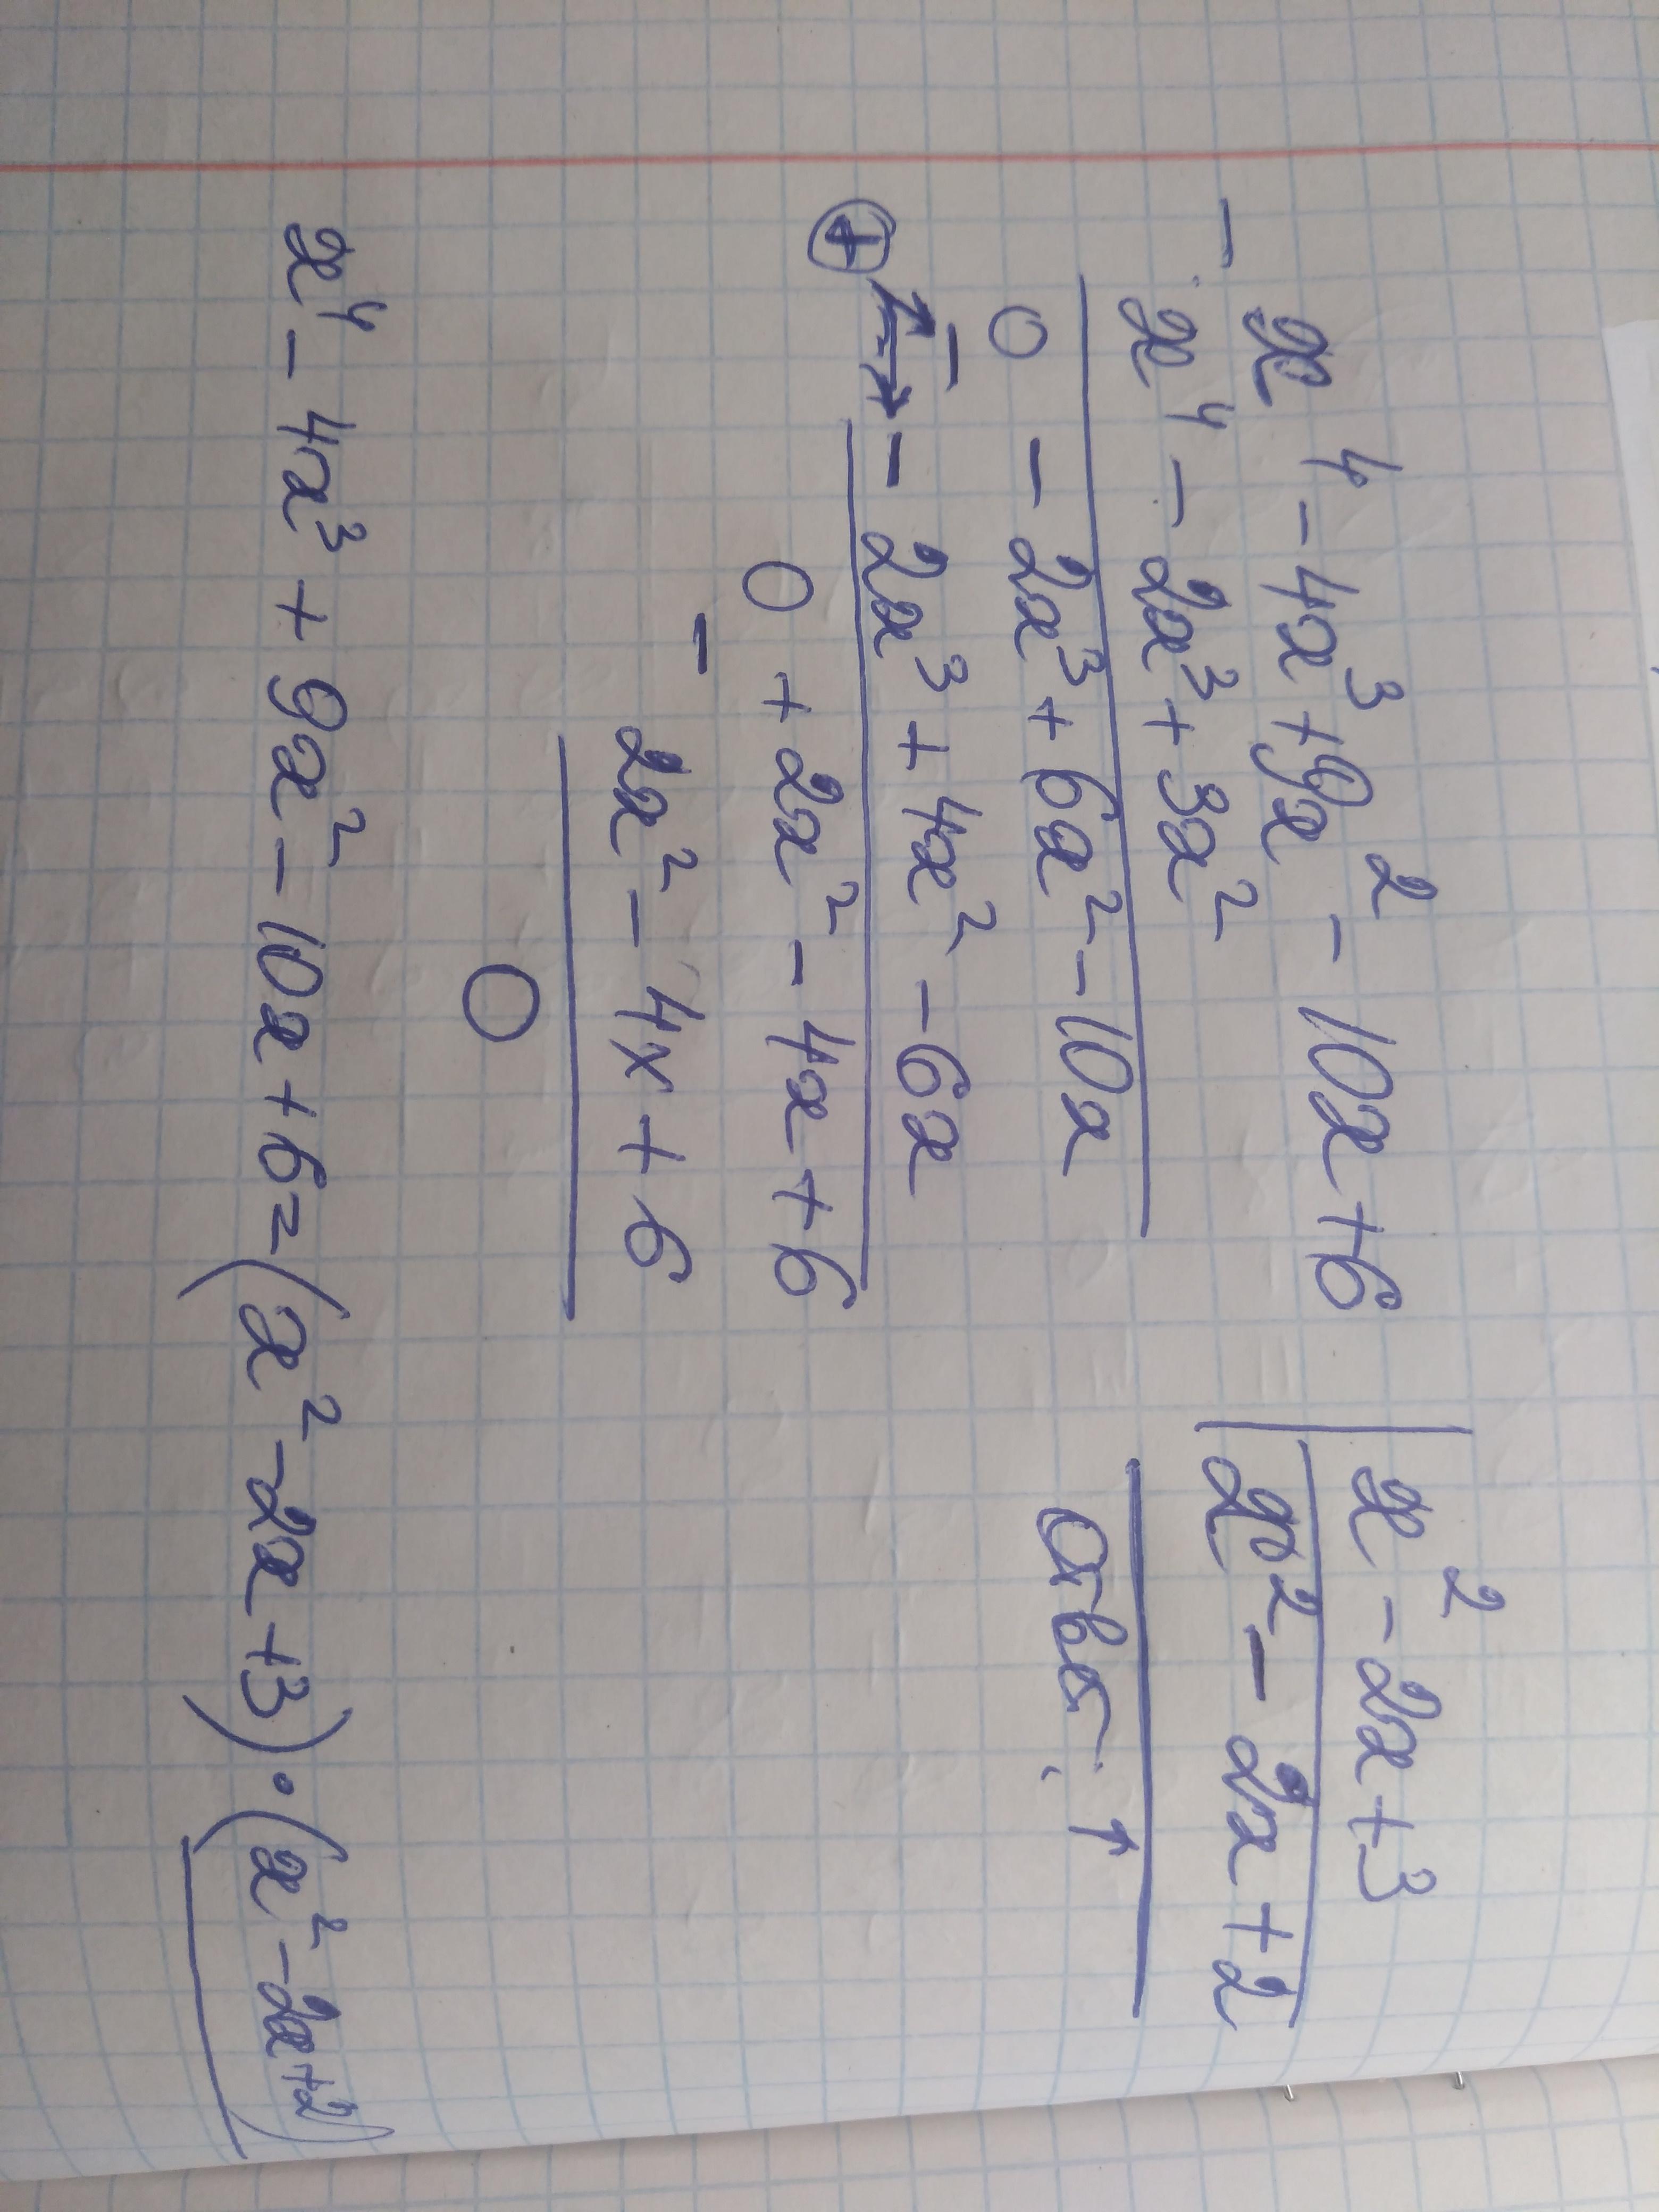 x⁴ - 4x³ + 9x² - 10x + 6 | x² - 2x + 3
- x⁴ - 2x³ + 3x² | x² - 2x + 2
0 - 2x³ + 6x² - 10x ответ ↑
- - 2x³ + 4x² - 6x
⊕
0 + 2x² - 4x + 6
- 2x² - 4x + 6
0
x⁴ - 4x³ + 9x² - 10x + 6 = (x² - 2x + 3) · (x² - 2x + 2)